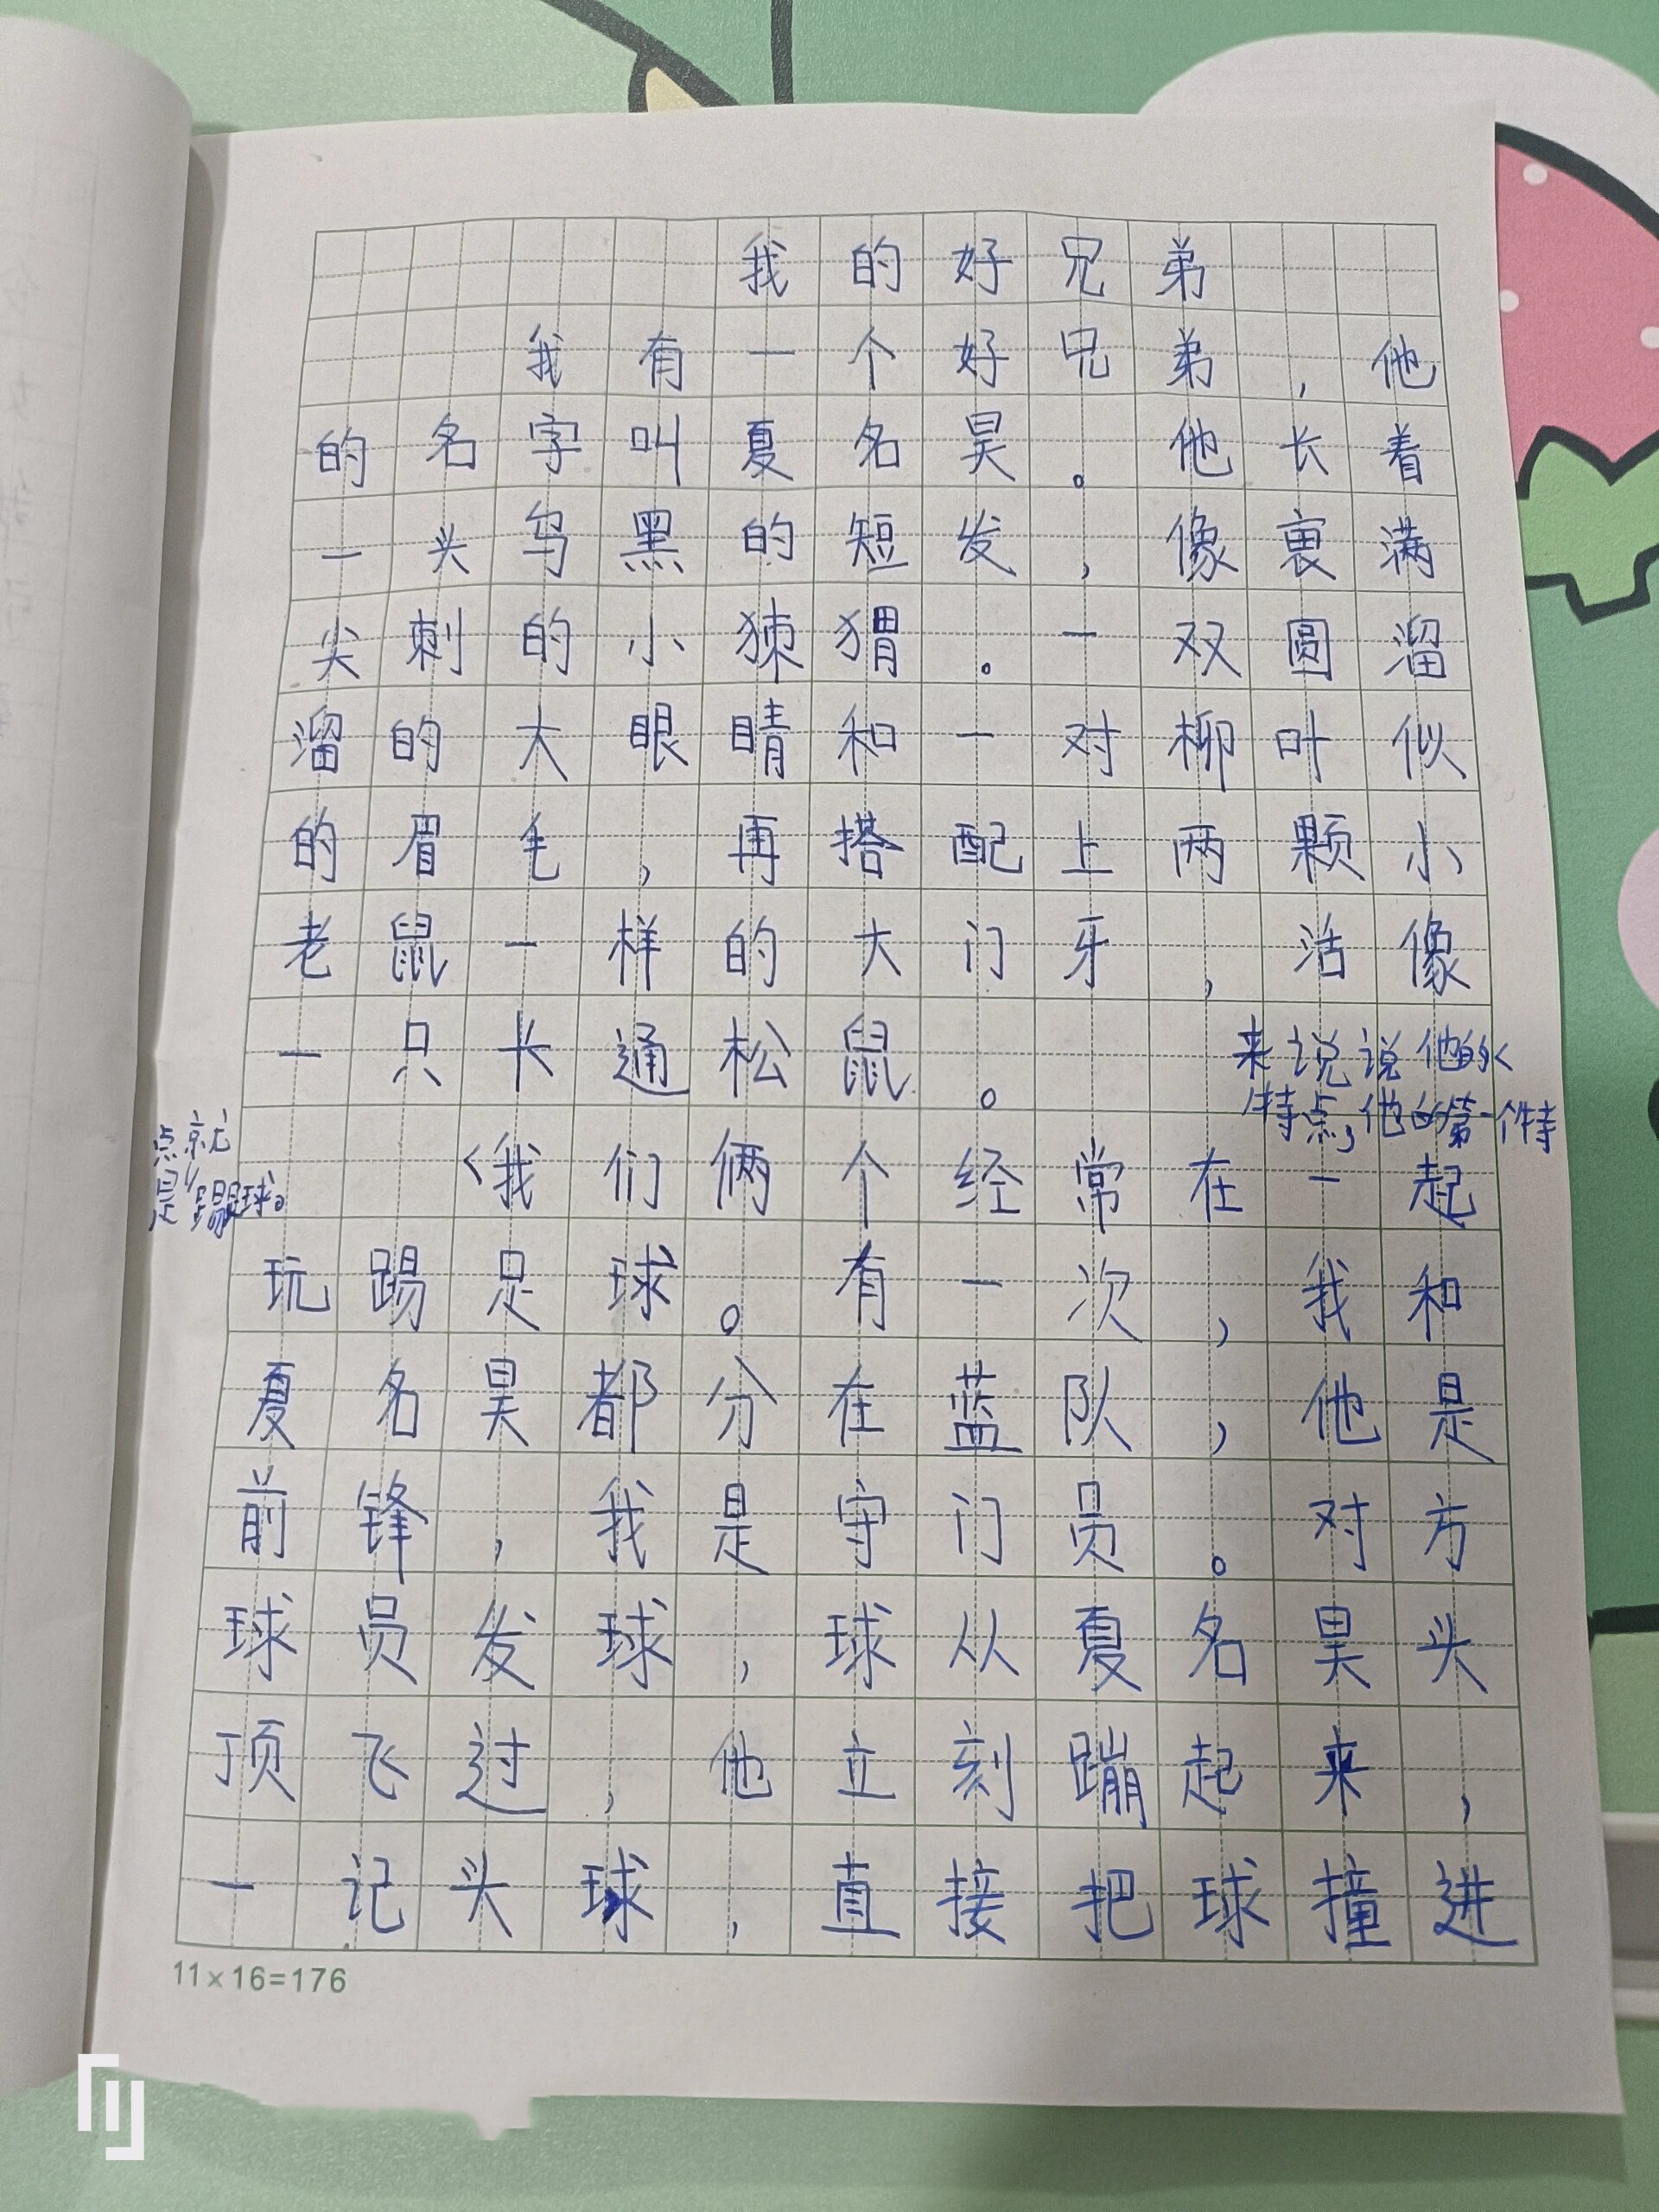 我的好兄弟
我有一个好兄弟，他
的名字叫夏名昊。他长着
一头乌黑的短发，像裹满
尖刺的小猬。一双圆溜
溜的大眼睛和一对柳叶似
的眉毛，再搭配上两颗小
老鼠一样的大门牙，活像
一只卡通松鼠。
来说说他的
特点，他的第一个特
点就
是踢球。
我们俩个经常在一起
玩踢足球。有一次，我和
夏名昊都分在蓝队，他是
前锋，我是守门员。对方
球员发球，球从夏名昊头
顶飞过，他立刻蹦起来，
一记头球，直接把球撞进
11×16=176